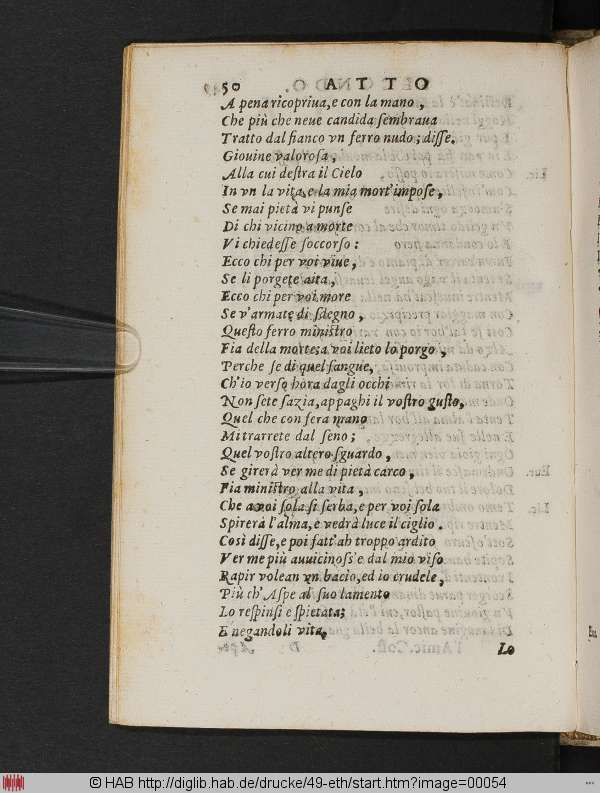 50 ATTO
A pena ricopriua, e con la mano,
Che più che neue candida sembraua
Tratto dal fianco vn ferro nudo; disse.
Giouine valorosa,
Alla cui destra il Cielo
In vn la vita, e la mia mort'impose,
Se mai pietà vi punse
Di chi vicino a morte
Vi chiedesse soccorso:
Ecco chi per voi viue,
Se li porgete aita,
Ecco chi per voi more
Se v'armate di sdegno,
Questo ferro ministro
Fia della morte; a voi lieto lo porgo,
Perche se di quel sangue,
Ch'io verso hora dagli occhi
Non sete sazia, appaghi il vostro gusto,
Quel che con fera mano
Mi trarrete dal seno;
Quel vostro altero sguardo,
Se girerà ver me di pietà carco,
Fia ministro alla vita,
Che a voi sola si serba, e per voi sola
Spirerà l'alma, e vedrà luce il ciglio.
Così disse, e poi fatt'ah troppo ardito
Ver me più auuicinoss'e dal mio viso
Rapir volean vn bacio, ed io crudele,
Più ch'Aspe al suo lamento
Lo respinsi e spietata;
E negandoli vita,
Lo
© HAB http://diglib.hab.de/drucke/49-eth/start.htm?image=00054